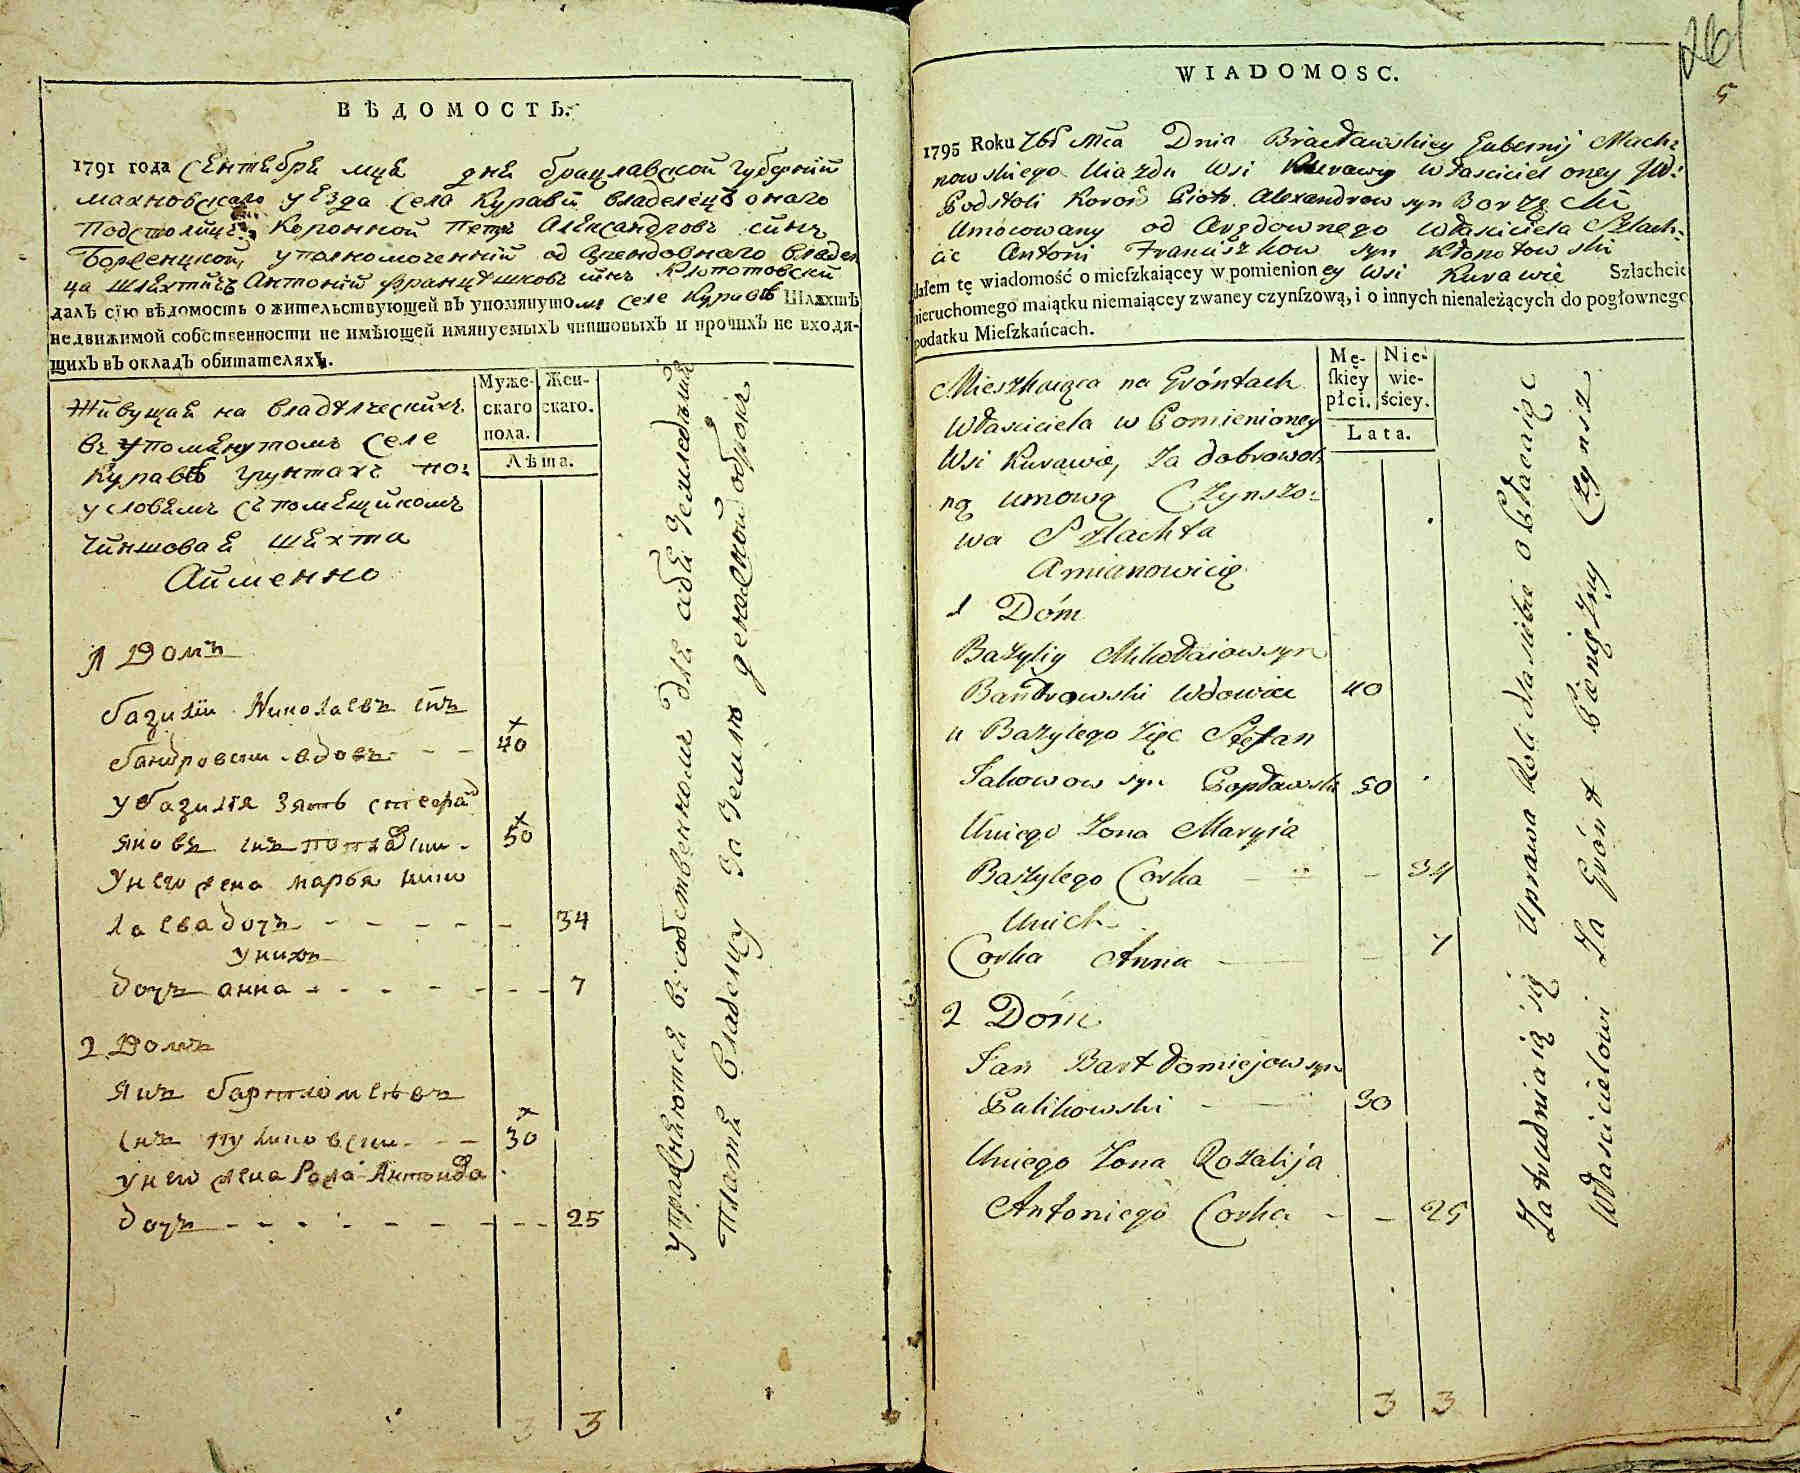 ВѢДОМОСТЬ.
1791 года сентебре мца дня брацлавской губерній
махновскаго уезда села Куравй владелецъ онаго
Подстолицъ Коронной Петръ Александровъ синъ
уполномоченній од арендовнаго владел
ца шляхтичъ Антоній Францишковъ синъ Клопотовскій
далъ сїю вѣдомость о жительствующей въ упомянутомъ селе Куравѣ Шляхтѣ
недвижимой собственности не имѣющей имянуемыхъ чиншовыхъ и прочихъ не входя-
щихъ въ окладъ обитателяхъ.
Муже- Жен-
скаго скаго.
пола.
Лѣта.
Живущая на владелческихъ
въ упомянутомъ селе
Куравѣ грунтахъ по
условемъ съ помещикомъ
чиншовая шляхта
Аименно
1 Домъ
базилій Николаевъ снъ
бандровски вдовъ - - - 40
у базилія зять стефа
яновъ снъ поплавски - 50
у него жена марья нико
лаева дочъ - - - - - 34
у нихъ
дочъ анна - - - - - - 7
2 Домъ
янъ бартломеѣвъ
снъ пуликовски - - - 30
у него жена Роза Антонова
дочъ - - - - - - - 25
упражняются в собственномъ для себя земледелий
платя владелцу за землю денежной оброкъ
3 3
261
5
WIADOMOSC.
1795 Roku 7bṙ Mca Dnia Bracławskiey Gubernij Mach:
nowskiego Uiazdu Wsi Kurawy Właściciel oney
Podstoli Koroń Piotr Alexandrow syn
Umocowany od Arędownego Właściciela Szlach:
cic Antoni Franciszkow syn Kłopotowski
dałem tę wiadomość o mieſzkaiącey w pomienioney Wsi Kurawie Szlachcie
nieruchomego maiątku niemaiącey zwaney czynſzową, i o innych nienależących do pogłownego
podatku Mieſzkańcach.
Mę- Nie-
ſkiey wie-
płci. ściey.
Lata.
Mieszkaiąca na Gróntach
Właściciela w Pomienioney
Wsi Kurawie, za dobrowol
ną umową Czynszo:
wa Szlachta
Amianowicie
1 Dóm
Bazyliy Mikołaiow syn
Bandrowski Wdowiec 40
u Bazylego Zięc Stefan
Jakowow syn Popławski 50
Uniego Zona Maryia
Bazylego Corka - - - 34
Unich
Corka Anna - - 7
2 Dóm
Jan Bartłomiejow syn
Pulikowski - - 30
Uniego Zona Rozalija
Antoniego Corka - - 25
Zatrudniaią się Uprawa Roli dla siebie opłacaiąc
Właścicielowi za Grónt Pieniężny Czynsz
3 3